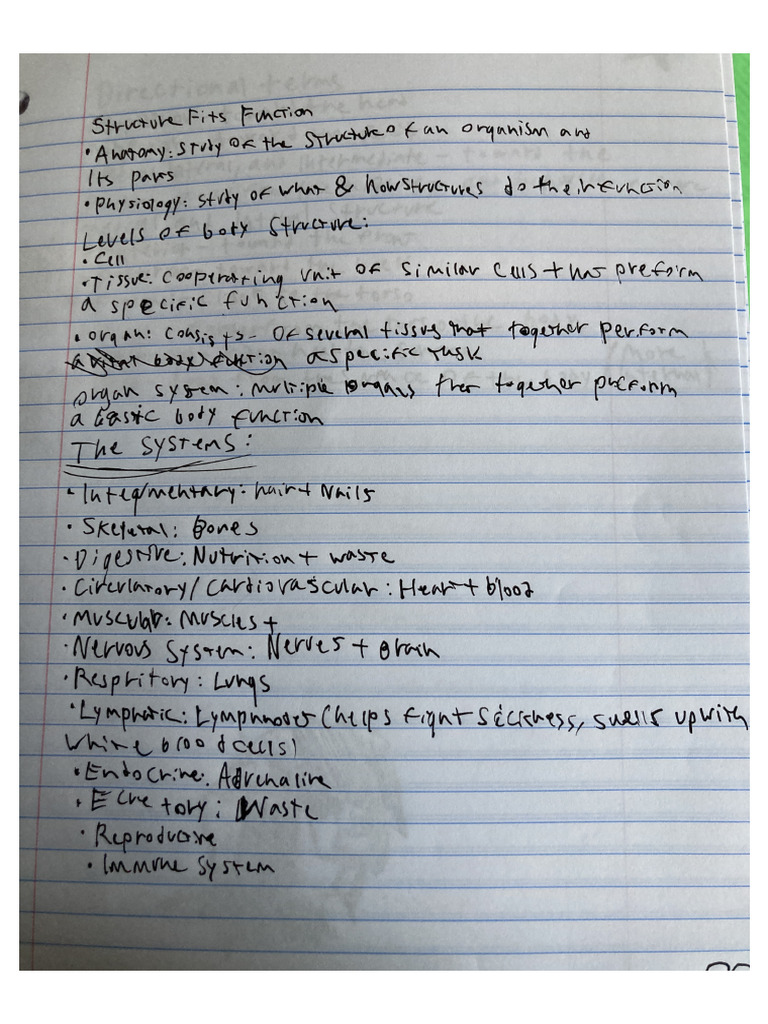 Structure Fits Function
• Anatomy: study of the structure of an organism and
its parts
• Physiology: study of what & how structures do their function
Levels of body structure:
• Cell
• Tissue: cooperating unit of similar cells that preform
a specific function
• organ: consists of several tissues that together perform
a specific task
organ system: multiple organs that together preform
a basic body function
The Systems:
• Integmentary: hair + Nails
• Skeletal: Bones
• Digestive: Nutrition + waste
• Circulatory/cardiovascular: Heart + blood
• Muscular: Muscles +
• Nervous System: Nerves + Brain
• Respritory: Lungs
• Lymphatic: Lymphnodes (helps fight sickness, swells up with
white blood cells)
• Endocrine: Adrenaline
• Ecretory: Waste
• Reproductive
• Immune System